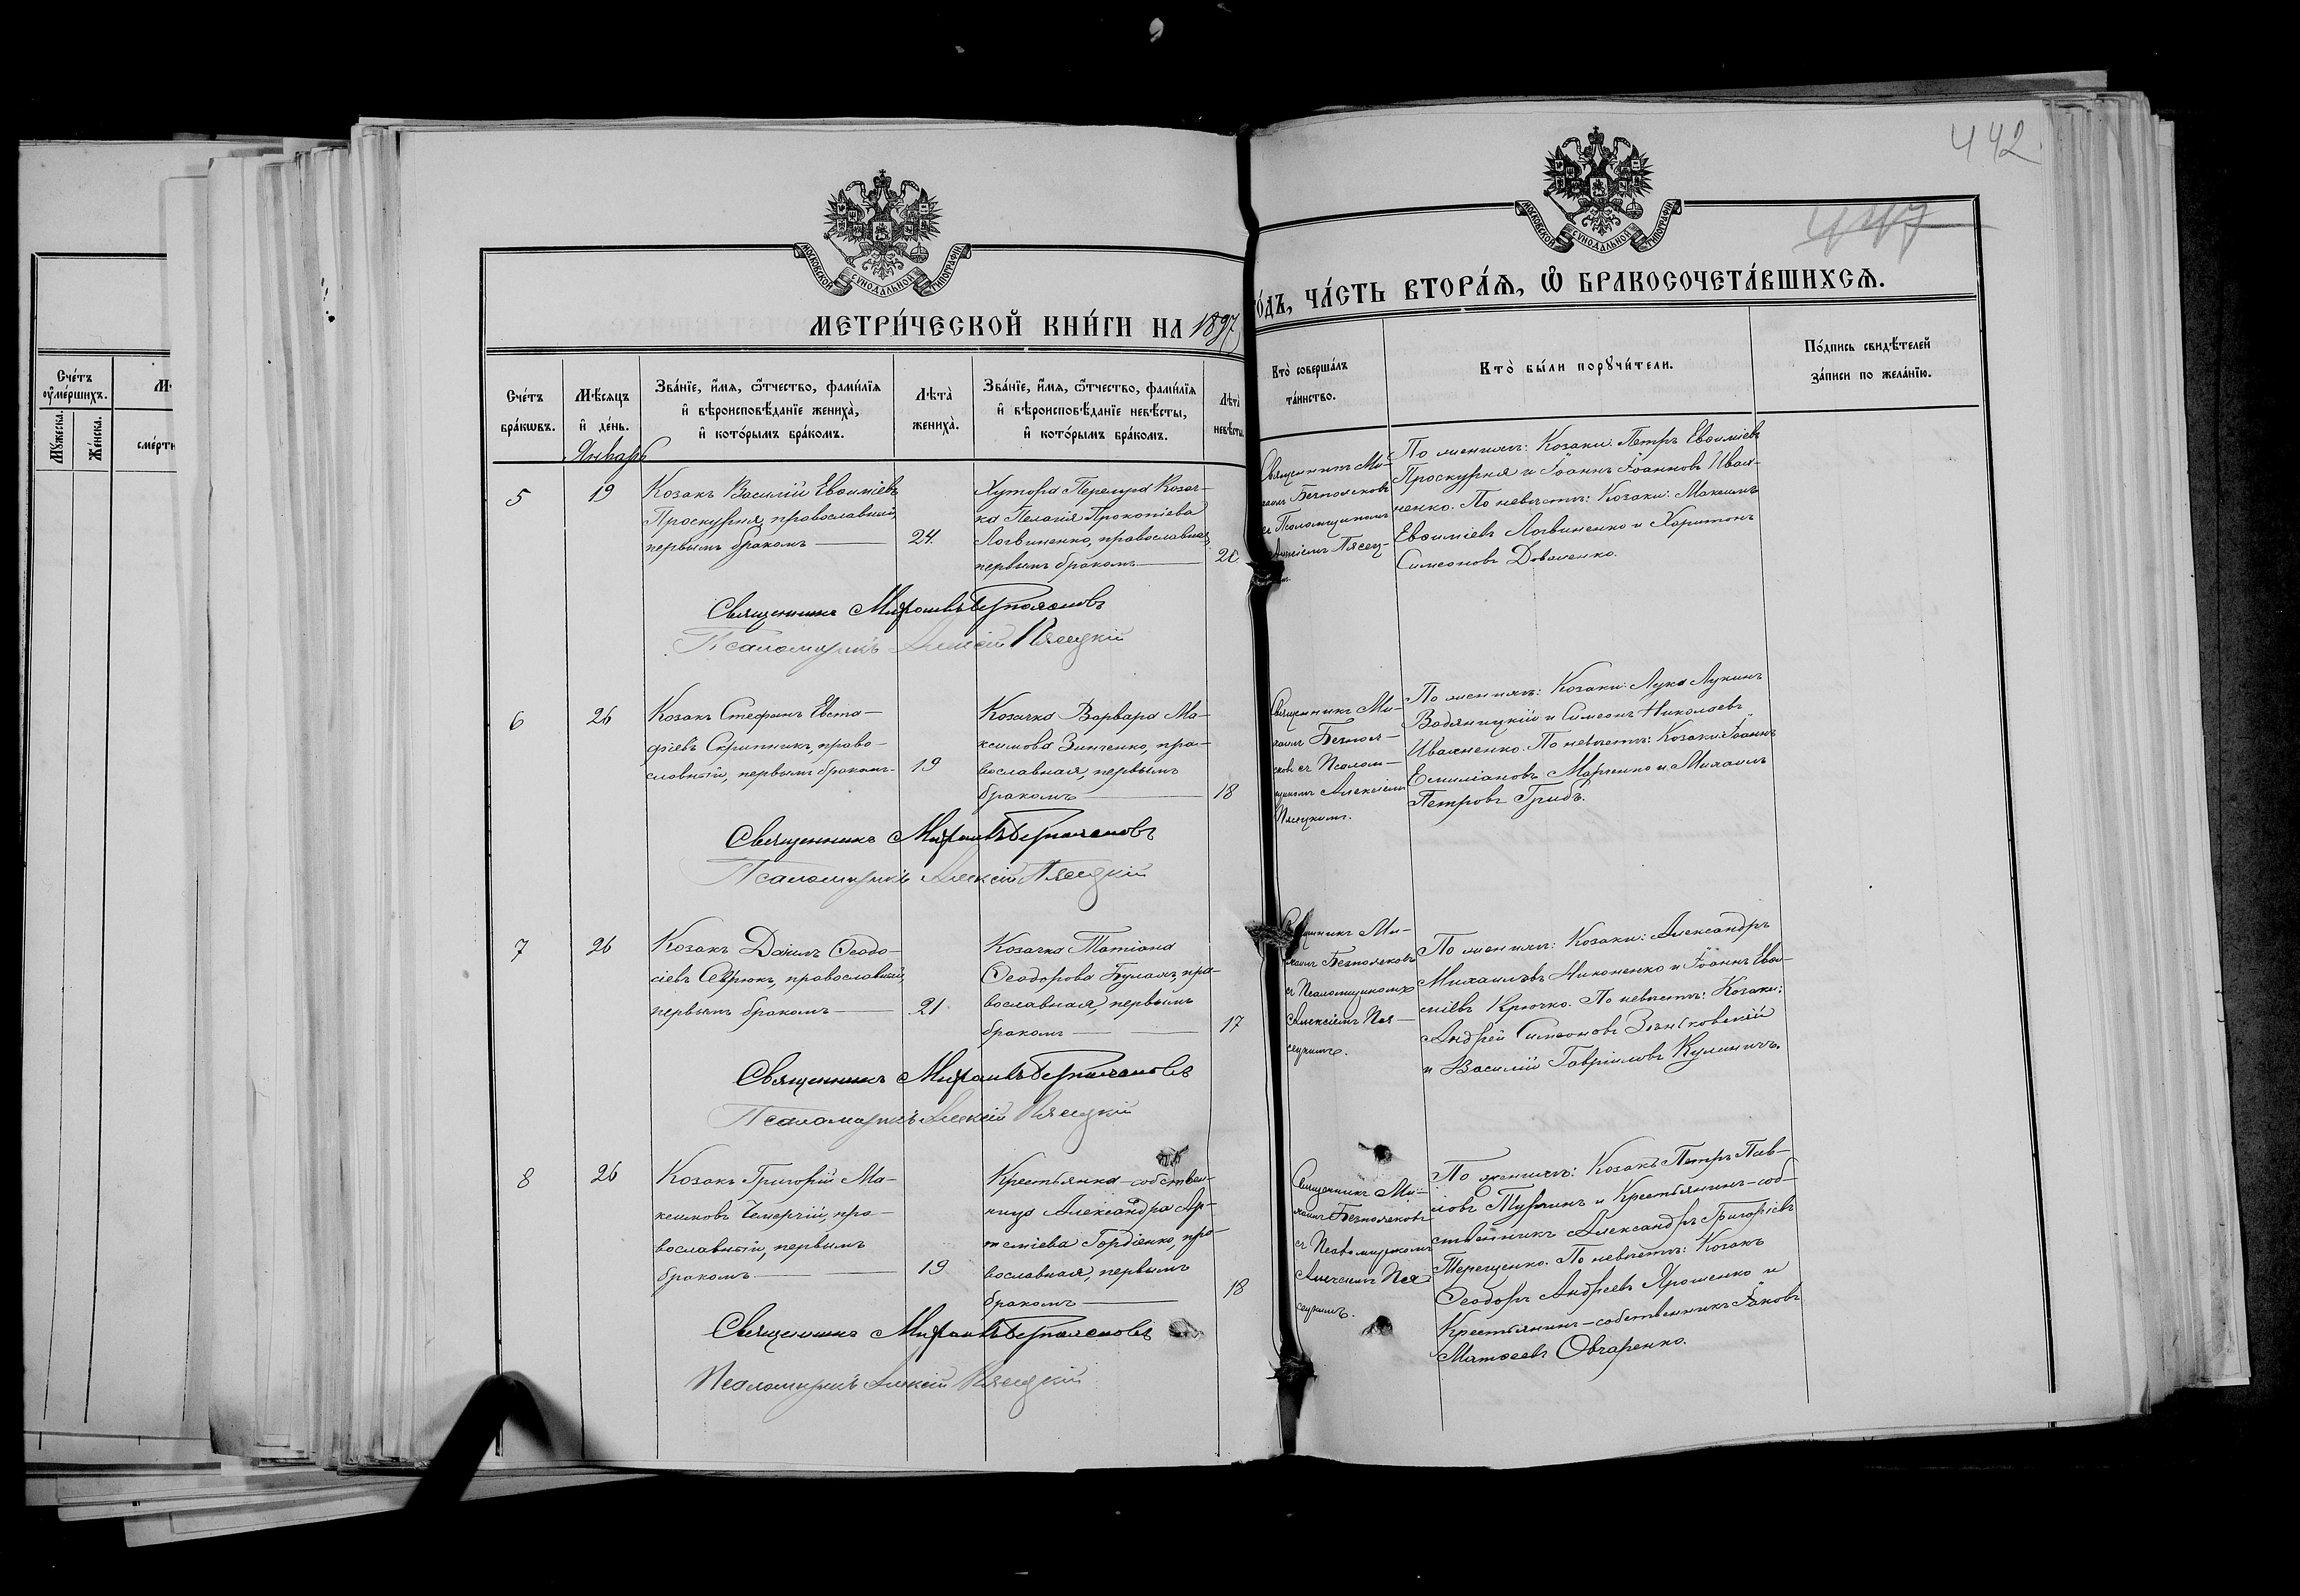 442
447
МОСКОВСКОЙ СУНОДАЛЬНОЙ ТИПОГРАФІИ
МОСКОВСКОЙ СУНОДАЛЬНОЙ ТИПОГРАФІИ
МЕТРИ́ЧЕСКОЙ КНИ́ГИ НА 1897
ЧА́СТЬ ВТОРА́Ѧ, Ѡ҆ БРАКОСОЧЕТА́ВШИХСѦ.
Сче́тъ
ᲂу҆ме́ршихъ.
Мꙋ́жеска.
Же́нска.
Сче́тъ
бра́кѡвъ.
Мѣ́сяцъ
и҆ де́нь.
Зва́нїе, и҆́мѧ, ѻ҆́тчество, фами́лїѧ
и҆ вѣроисповѣ́данїе жениха̀,
и҆ кото́рымъ бра́комъ.
Лѣта̀
жениха̀.
Зва́нїе, и҆́мѧ, ѻ҆́тчество, фами́лїѧ
и҆ вѣроисповѣ́данїе невѣ́сты,
и҆ кото́рымъ бра́комъ.
Лѣта̀
невѣ́сты.
Кто̀ соверша́лъ
та́инство.
Кто̀ бы́ли порꙋчи́тели.
По́дпись свидѣ́телей
за́писи по жела́нїю.
Январь
5
19
Козакъ Василій Евѳиміевъ
Проскурня, православный,
первымъ бракомъ
24.
Хутора Перелура Козач-
ка Пелагія Прокопіева
Логвиненко, православная,
первымъ бракомъ
Священникъ Ми-
хаилъ Безпоясковъ
съ Псаломщикомъ
Алексіемъ Пясец-
По женихѣ: Козаки: Петръ Евѳиміевъ
Проскурня и Іоаннъ Іоанновъ Ивах-
ненко. По невѣстѣ: Козаки: Максимъ
Евѳиміевъ Логвиненко и Харитонъ
Симеоновъ Доваленко.
Священникъ Михаилъ Безпоясковъ
Псаломщикъ Алексій Пясецкій
6
26
Козакъ Стефанъ Евста-
фіевъ Скрипникъ, право-
славный, первымъ бракомъ
19
Козачка Варвара Ма-
ксимова Зинченко, пра-
вославная, первымъ
бракомъ
18
Священникъ Ми-
хаилъ Безпоя-
сковъ съ Псалом-
щикомъ Алексіемъ
Пясецкимъ.
По женихѣ: Козаки: Лука Лукинъ
Водяницкій и Симеонъ Николаевъ
Ивахненко. По невѣстѣ: Козаки: Іоаннъ
Емиліановъ Марченко и Михаилъ
Петровъ Грибъ.
Священникъ Михаилъ Безпоясковъ
Псаломщикъ Алексій Пясецкій
7
26
Козакъ Даніилъ Ѳеодо-
сіевъ Сѣврюкъ, православный,
первымъ бракомъ
21
Козачка Татіана
Ѳеодорова Булахъ, пра-
вославная, первымъ
бракомъ
17
Священникъ Ми-
хаилъ Безпоясковъ
съ Псаломщикомъ
Алексіемъ Пя-
сецкимъ.
По женихѣ: Козаки: Александръ
Михаиловъ Никоненко и Іоаннъ Евѳи-
міевъ Крючко. По невѣстѣ: Козаки:
Андрей Симеоновъ Зѣньковскій
и Василій Гавріиловъ Кулиничъ.
Священникъ Михаилъ Безпоясковъ
Псаломщикъ Алексій Пясецкій
8
26
Козакъ Григорій Ма-
ксимовъ Чемерчій, пра-
вославный, первымъ
бракомъ
19
Крестьянка-собствен-
ница Александра Ар-
теміева Гордіенко, пра-
вославная, первымъ
бракомъ
18
Священникъ Ми-
хаилъ Безпоясковъ
съ Псаломщикомъ
Алексіемъ Пя-
сецкимъ.
По женихѣ: Козакъ Петръ Пав-
ловъ и Крестьянинъ-соб-
ственникъ Александръ Григоріевъ
Терещенко. По невѣстѣ: Козакъ
Ѳеодоръ Андреевъ Ярошенко и
Крестьянинъ-собственникъ Іаковъ
Матѳеевъ Овчаренко.
Священникъ Михаилъ Безпоясковъ
Псаломщикъ Алексій Пясецкій